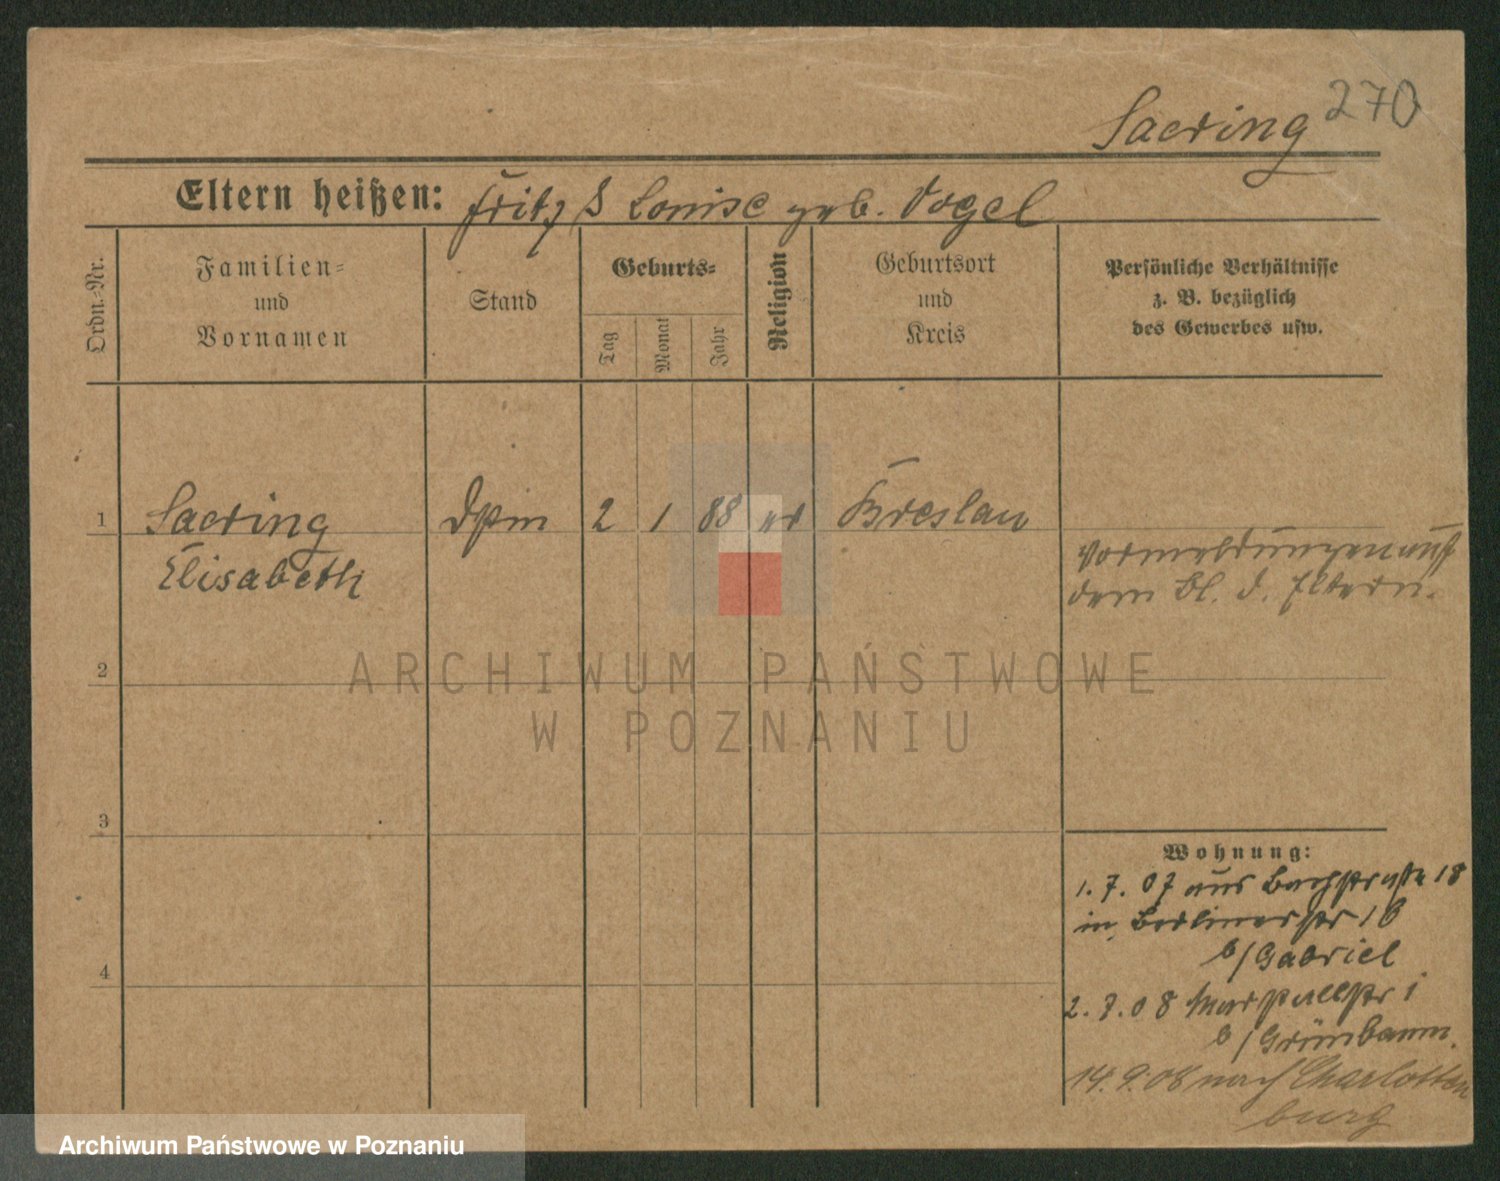 270
Saering
Eltern heißen: Fritz & Louise geb. Vogel
Ordn.-Nr.
Familien-
und
Vornamen
Stand
Geburts-
Tag
Monat
Jahr
Religion
Geburtsort
und
Kreis
Persönliche Verhältnisse
z. B. bezüglich
des Gewerbes usw.
1 Saering 2 1 88 Breslau
Elisabeth
Vormeldungen auf
dem Bl. d. Eltern.
2
3
4
Wohnung:
1. 7. 07 aus Bachstraße 18
in Berlinerstr 16
b/ Gabriel
2. 7. 08 Marstallstr 1
b/ Grünbaum.
14. 9. 08 nach Charlotten
burg
ARCHIWUM PAŃSTWOWE
W POZNANIU
Archiwum Państwowe w Poznaniu